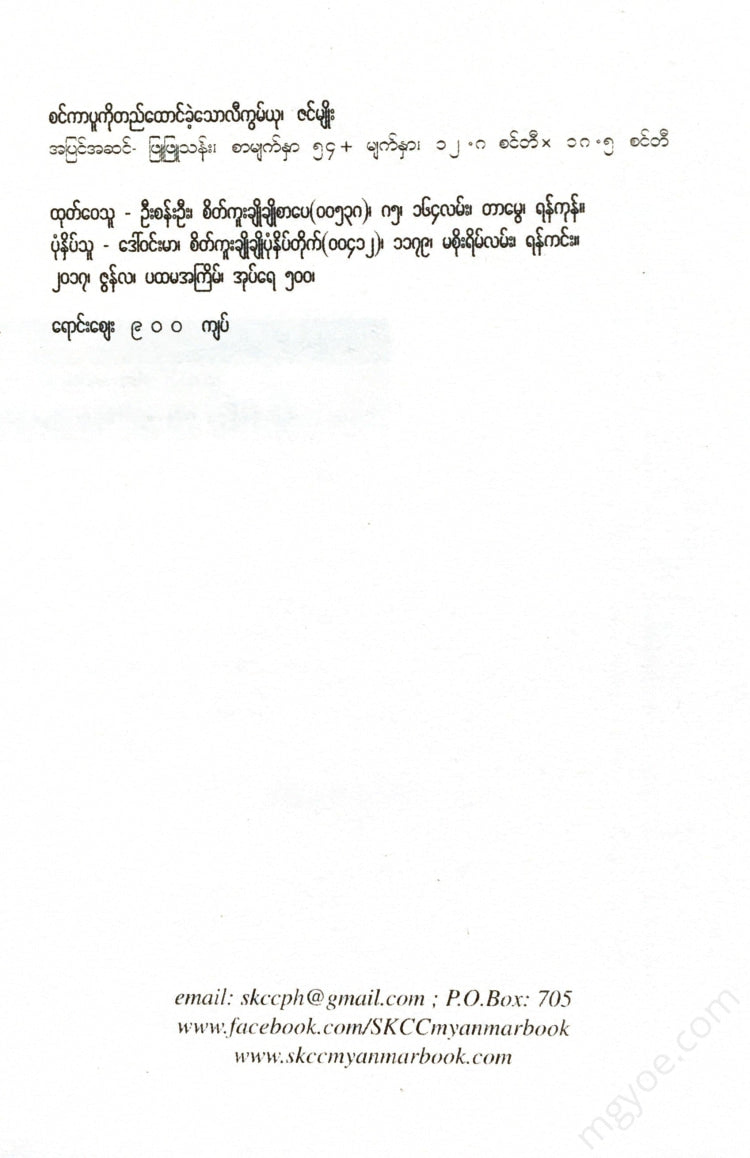 စင်ကာပူကိုတည်ထောင်ခဲ့သောလီကွမ်ယု၊ ဇင်မျိုး
အပြင်အဆင်- ဖြူဖြူသန်း၊ စာမျက်နှာ ၅၄+ မျက်နှား၊ ၁၂.၈ စင်တီ× ၁၈.၅ စင်တီ
ထုတ်ဝေသူ - ဦးစန်းဦး၊ စိတ်ကူးချိုချိုစာပေ(၀၀၅၃၈)၊ ၈၅၊ ၁၆၄လမ်း၊ တာမွေ၊ ရန်ကုန်။
ပုံနှိပ်သူ - ဒေါ်ဝင်းမာ၊ စိတ်ကူးချိုချိုပုံနှိပ်တိုက်(၀၀၄၁၂)၊ ၁၁၇၉၊ မစိုးရိမ်လမ်း၊ ရန်ကင်း။
၂၀၁၇၊ ဇွန်လ၊ ပထမအကြိမ်၊ အုပ်ရေ ၅၀၀၊
ရောင်းဈေး ၉ ၀ ၀ ကျပ်
email: skccph@gmail.com ; P.O.Box: 705
www.facebook.com/SKCCmyanmarbook
www.skccmyanmarbook.com
mgyoe.com